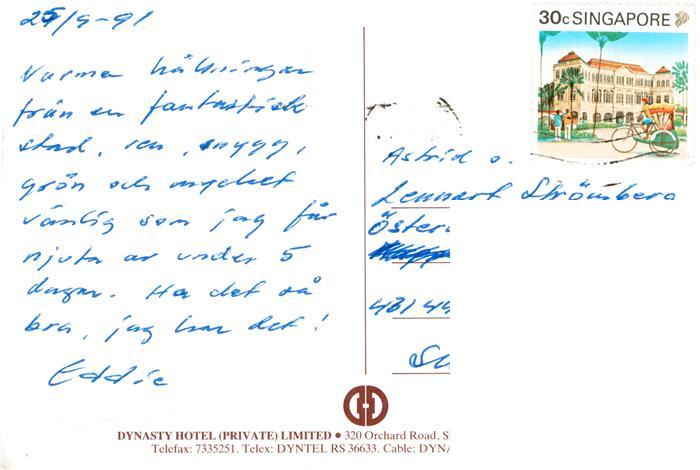 25/9-91
Varma hälsningar
från en fantastisk
stad, ren, snygg,
grön och mycket
vänlig som jag får
njuta av under 5
dagar. Ha det så
bra, jag har det!
Eddie
30c SINGAPORE
Astrid o.
Lennart Strömberg
Öster
431 44
DYNASTY HOTEL (PRIVATE) LIMITED ● 320 Orchard Road, S
Telefax: 7335251. Telex: DYNTEL RS 36633. Cable: DYNA